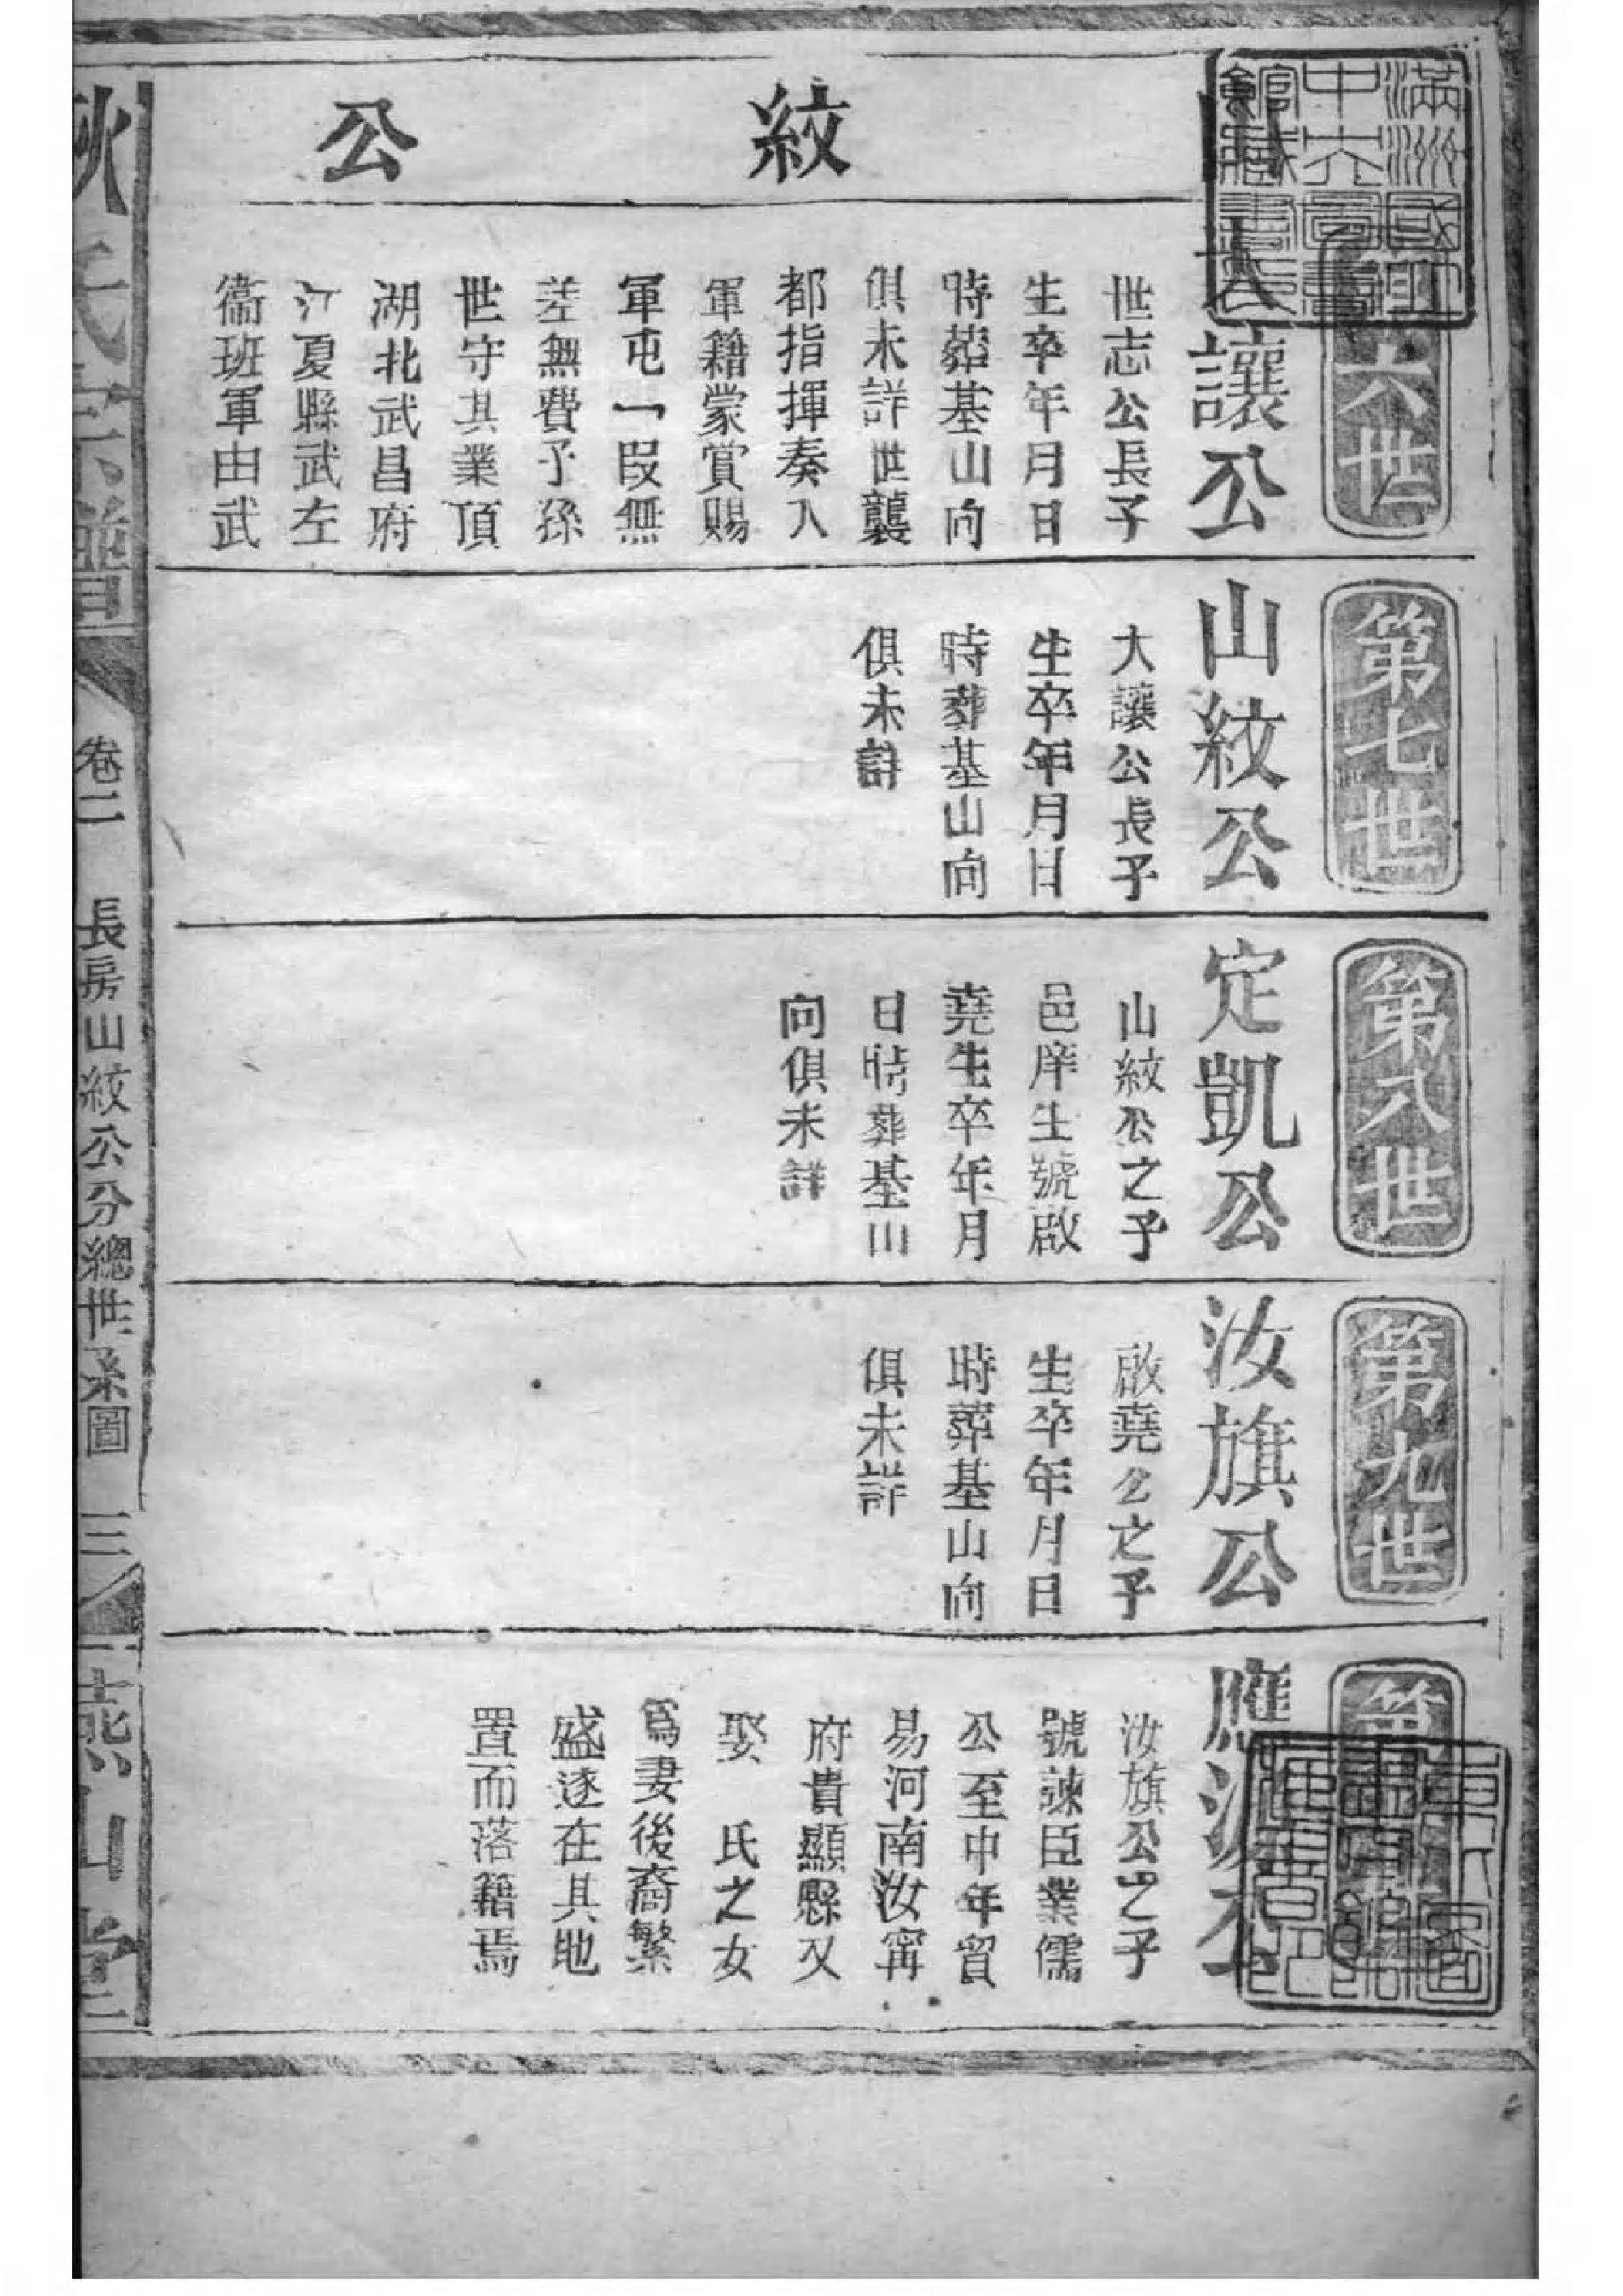 紋公
第六世
大讓公
世志公長子
生卒年月日
時葬基山向
俱未詳世襲
都指揮奏入
軍籍蒙賞賜
軍屯一段無
差無費子孫
世守其業頂
湖北武昌府
江夏縣武左
衞班軍由武
第七世
山紋公
大讓公長子
生卒年月日
時葬基山向
俱未詳
第八世
定凱公
山紋公之子
邑庠生號啟
堯生卒年月
日時葬基山
向俱未詳
第九世
汝旗公
啟堯公之子
生卒年月日
時葬基山向
俱未詳
第
應
汝旗公之子
號諫臣業儒
公至中年貿
易河南汝甯
府貴顯縣又
娶 氏之女
爲妻後裔繁
盛逐在其地
置而落籍焉
氏宗譜
卷二 長房山紋公分總世系圖 三
燕山堂
滿洲國立
中央圖書
館藏書印